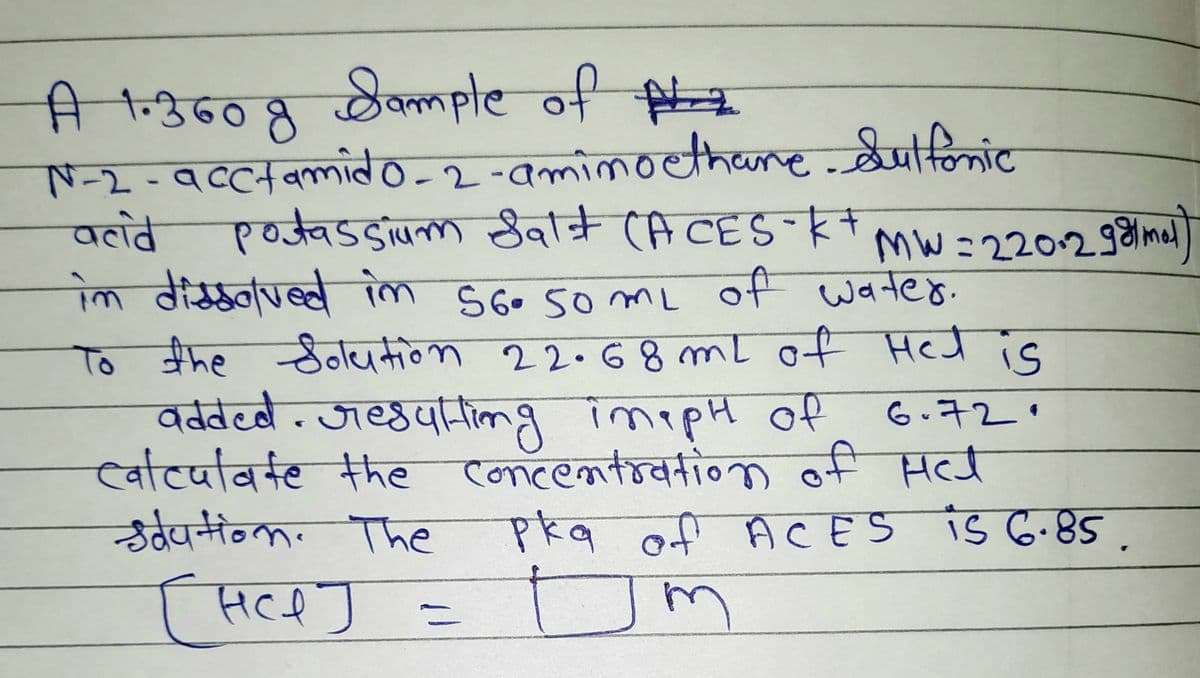 A 1.360 g Sample of
N-2-acctamido-2-aminoethane-Sulfonic
acid potassium Salt (ACES-k+ MW=220.29g/mol)
in dissolved in 56.50 mL of water.
To the Solution 22.68 mL of Hcl is
added. resulting in pH of 6.72.
calculate the concentration of Hcl
solution. The pka of ACES is 6.85.
[HCl] = □ m